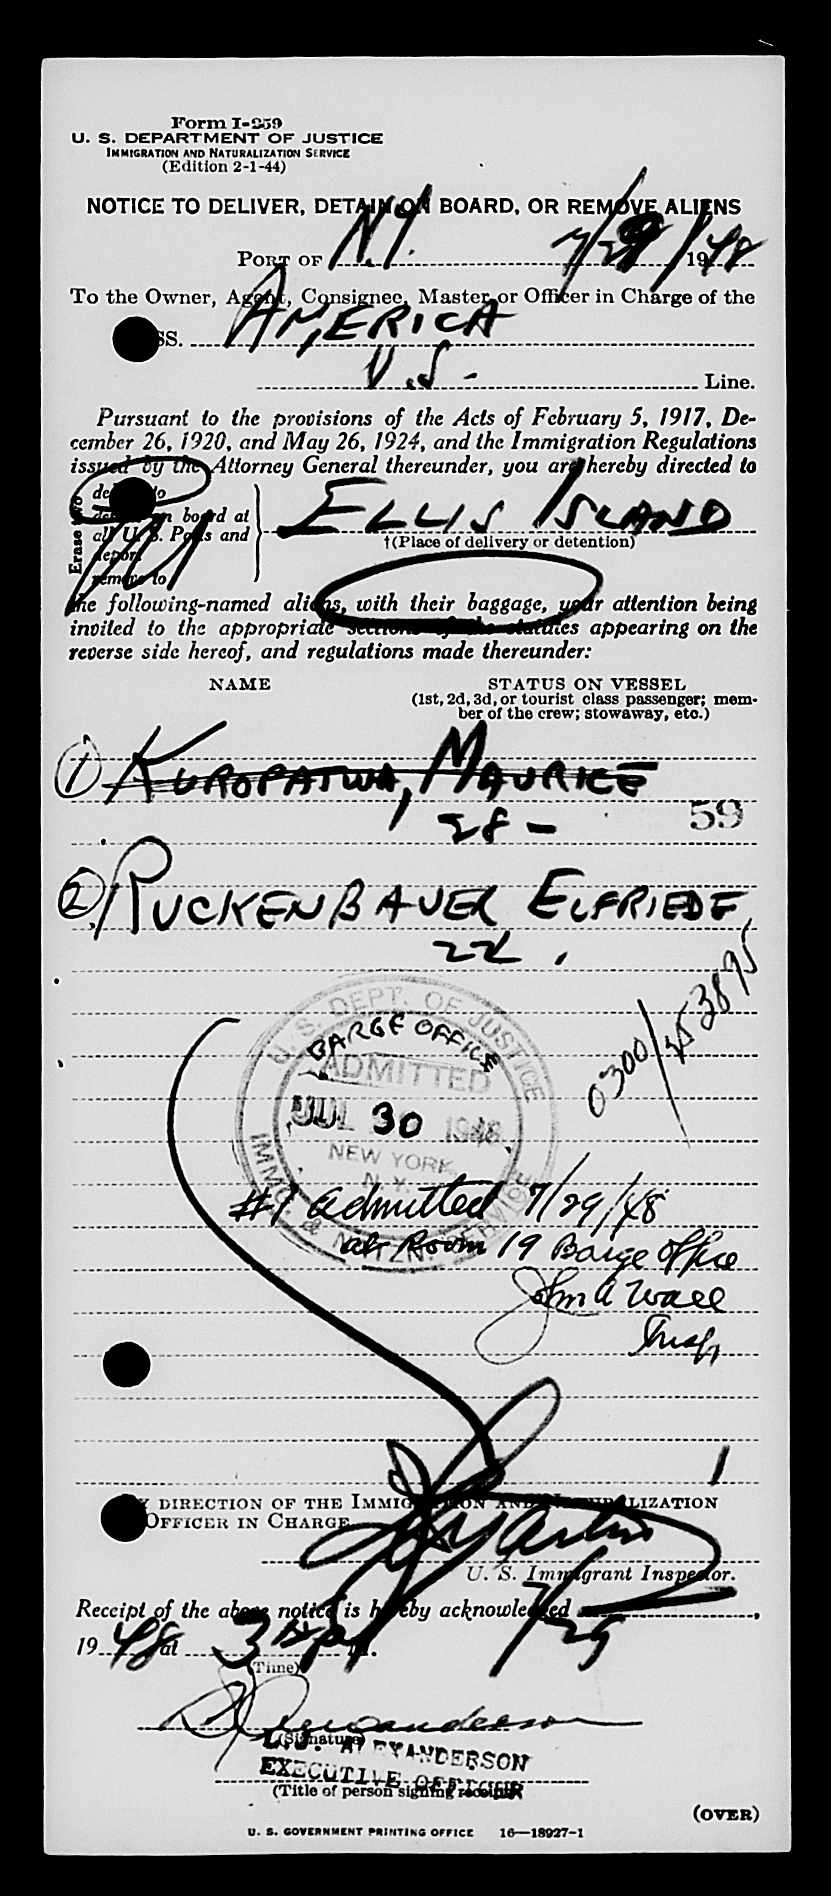 Form I-259
U. S. DEPARTMENT OF JUSTICE
IMMIGRATION AND NATURALIZATION SERVICE
(Edition 2-1-44)
NOTICE TO DELIVER, DETAIN ON BOARD, OR REMOVE ALIENS
PORT OF N.Y. 7/29/ 1948
To the Owner, Agent, Consignee, Master or Officer in Charge of the
SS. AMERICA
U.S. Line.
Pursuant to the provisions of the Acts of February 5, 1917, De-
cember 26, 1920, and May 26, 1924, and the Immigration Regulations
issued by the Attorney General thereunder, you are hereby directed to
Erase two
deliver to
detain on board at
all U. S. Ports and
deport
remove to
ELLIS ISLAND
†(Place of delivery or detention)
the following-named aliens, with their baggage, your attention being
invited to the appropriate sections of the statutes appearing on the
reverse side hereof, and regulations made thereunder:
NAME STATUS ON VESSEL
(1st, 2d, 3d, or tourist class passenger; mem-
ber of the crew; stowaway, etc.)
1 KUROPATWA, MAURICE
28 - 59
2 RUCKENBAUER ELFRIEDE
22.
0300/353895
U. S. DEPT. OF JUSTICE
BARGE OFFICE
ADMITTED
JUL 30 1948
NEW YORK,
N. Y.
IMMG. & NATZN. SERVICE
#1 admitted 7/29/48
at Room 19 Barge Office
John A Wall
Insp,
BY DIRECTION OF THE IMMIGRATION AND NATURALIZATION
OFFICER IN CHARGE
Martin
U. S. Immigrant Inspector.
Receipt of the above notice is hereby acknowledged 7/29,
1948 at 3 M.
(Time)
(Signature)
L. J. ALEXANDERSON
EXECUTIVE OFFICER
(Title of person signing receipt)
(OVER)
U. S. GOVERNMENT PRINTING OFFICE 16—18927-1